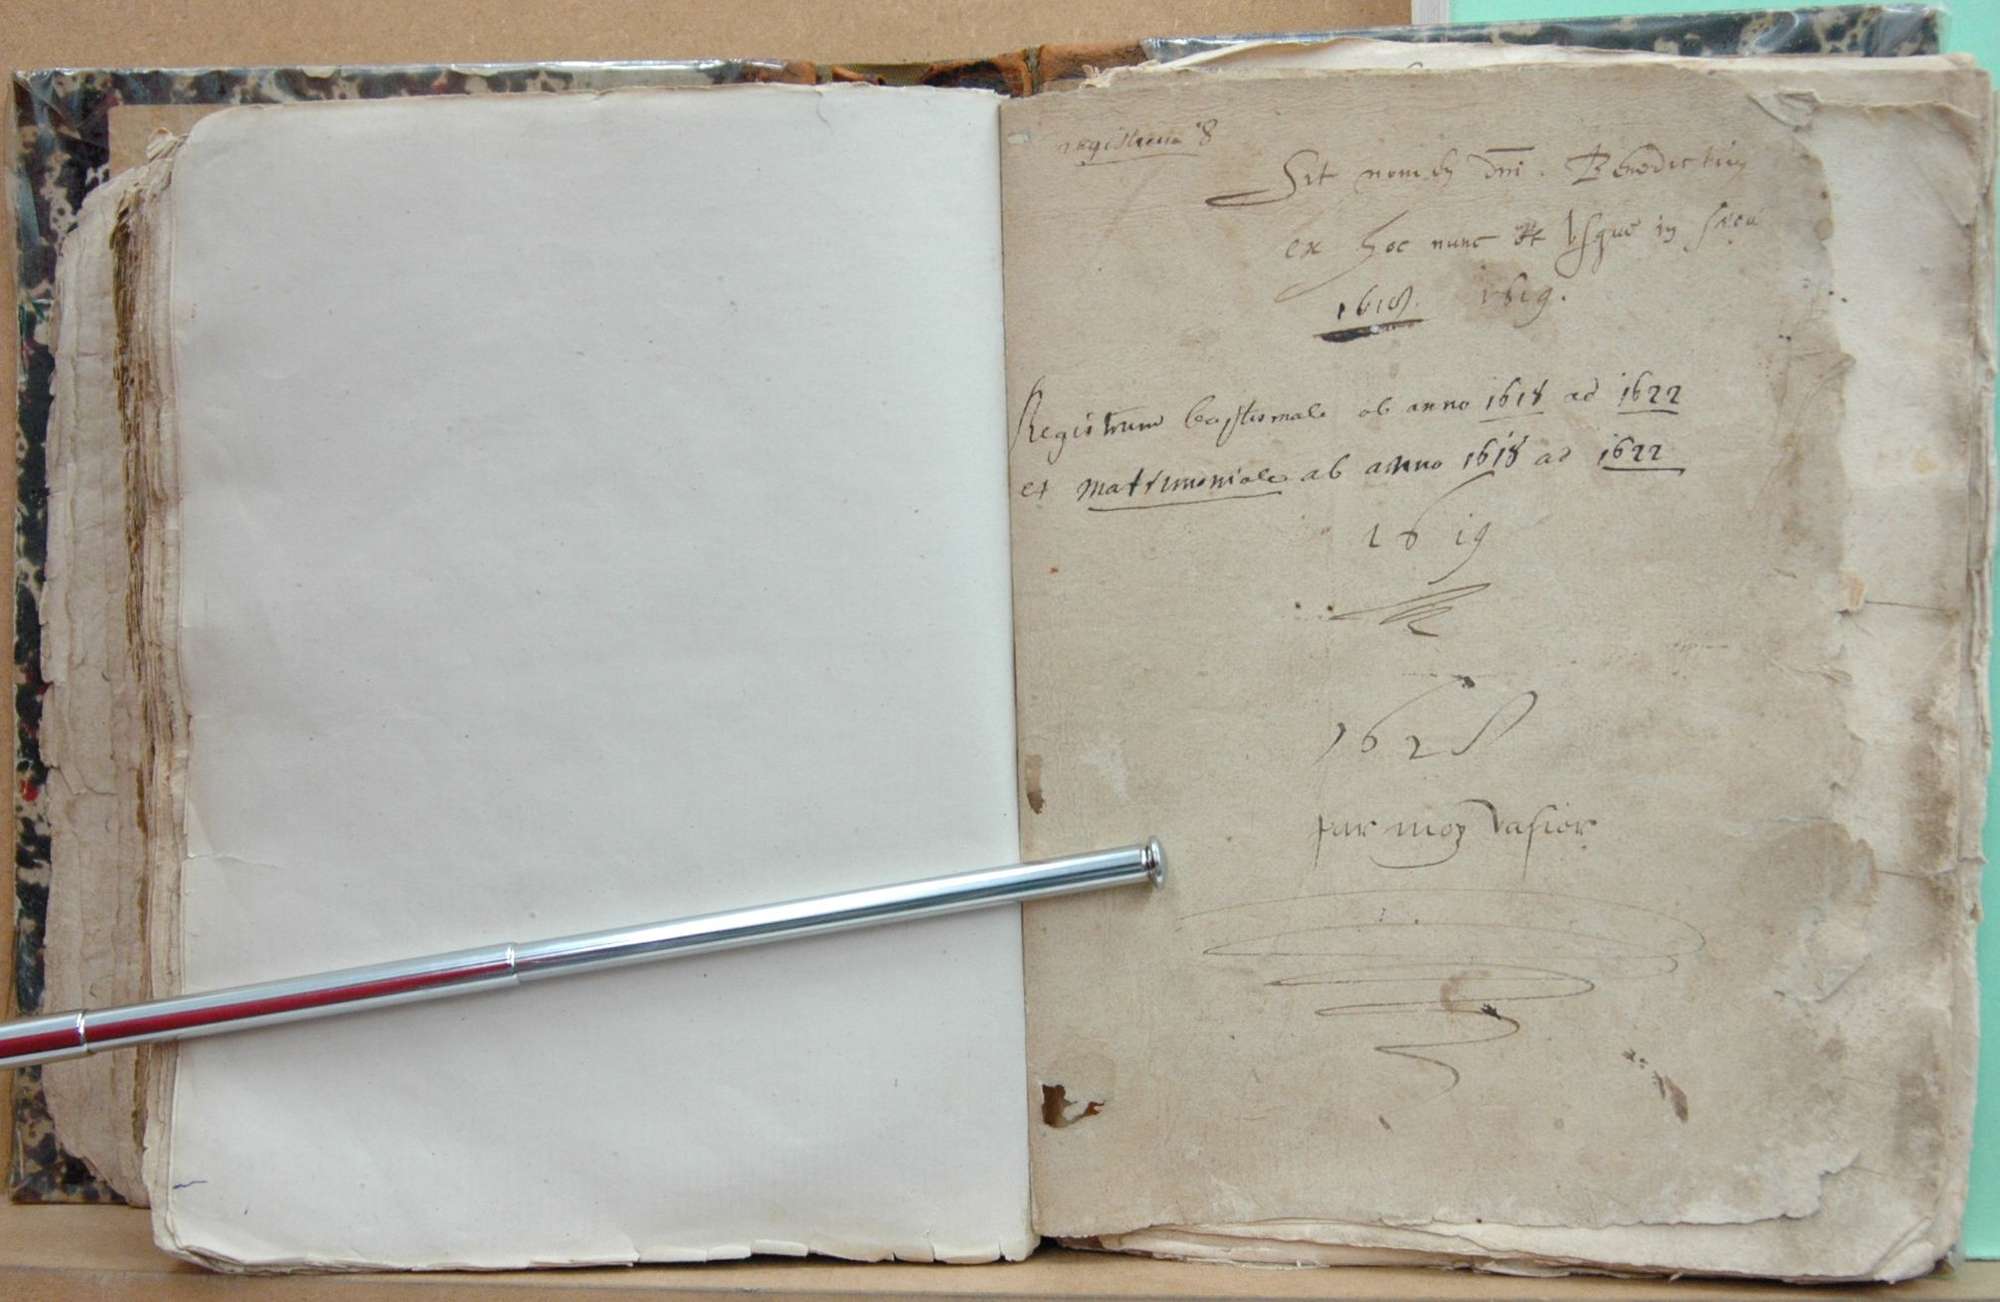 registrum 8
Sit nomen dni. Benedictum
ex hoc nunc et Usque in secu
1618. 1619.
Registrum baptismale ab anno 1618 ad 1622
et matrimoniale ab anno 1618 ad 1622
1619
1628
par moy Vasior